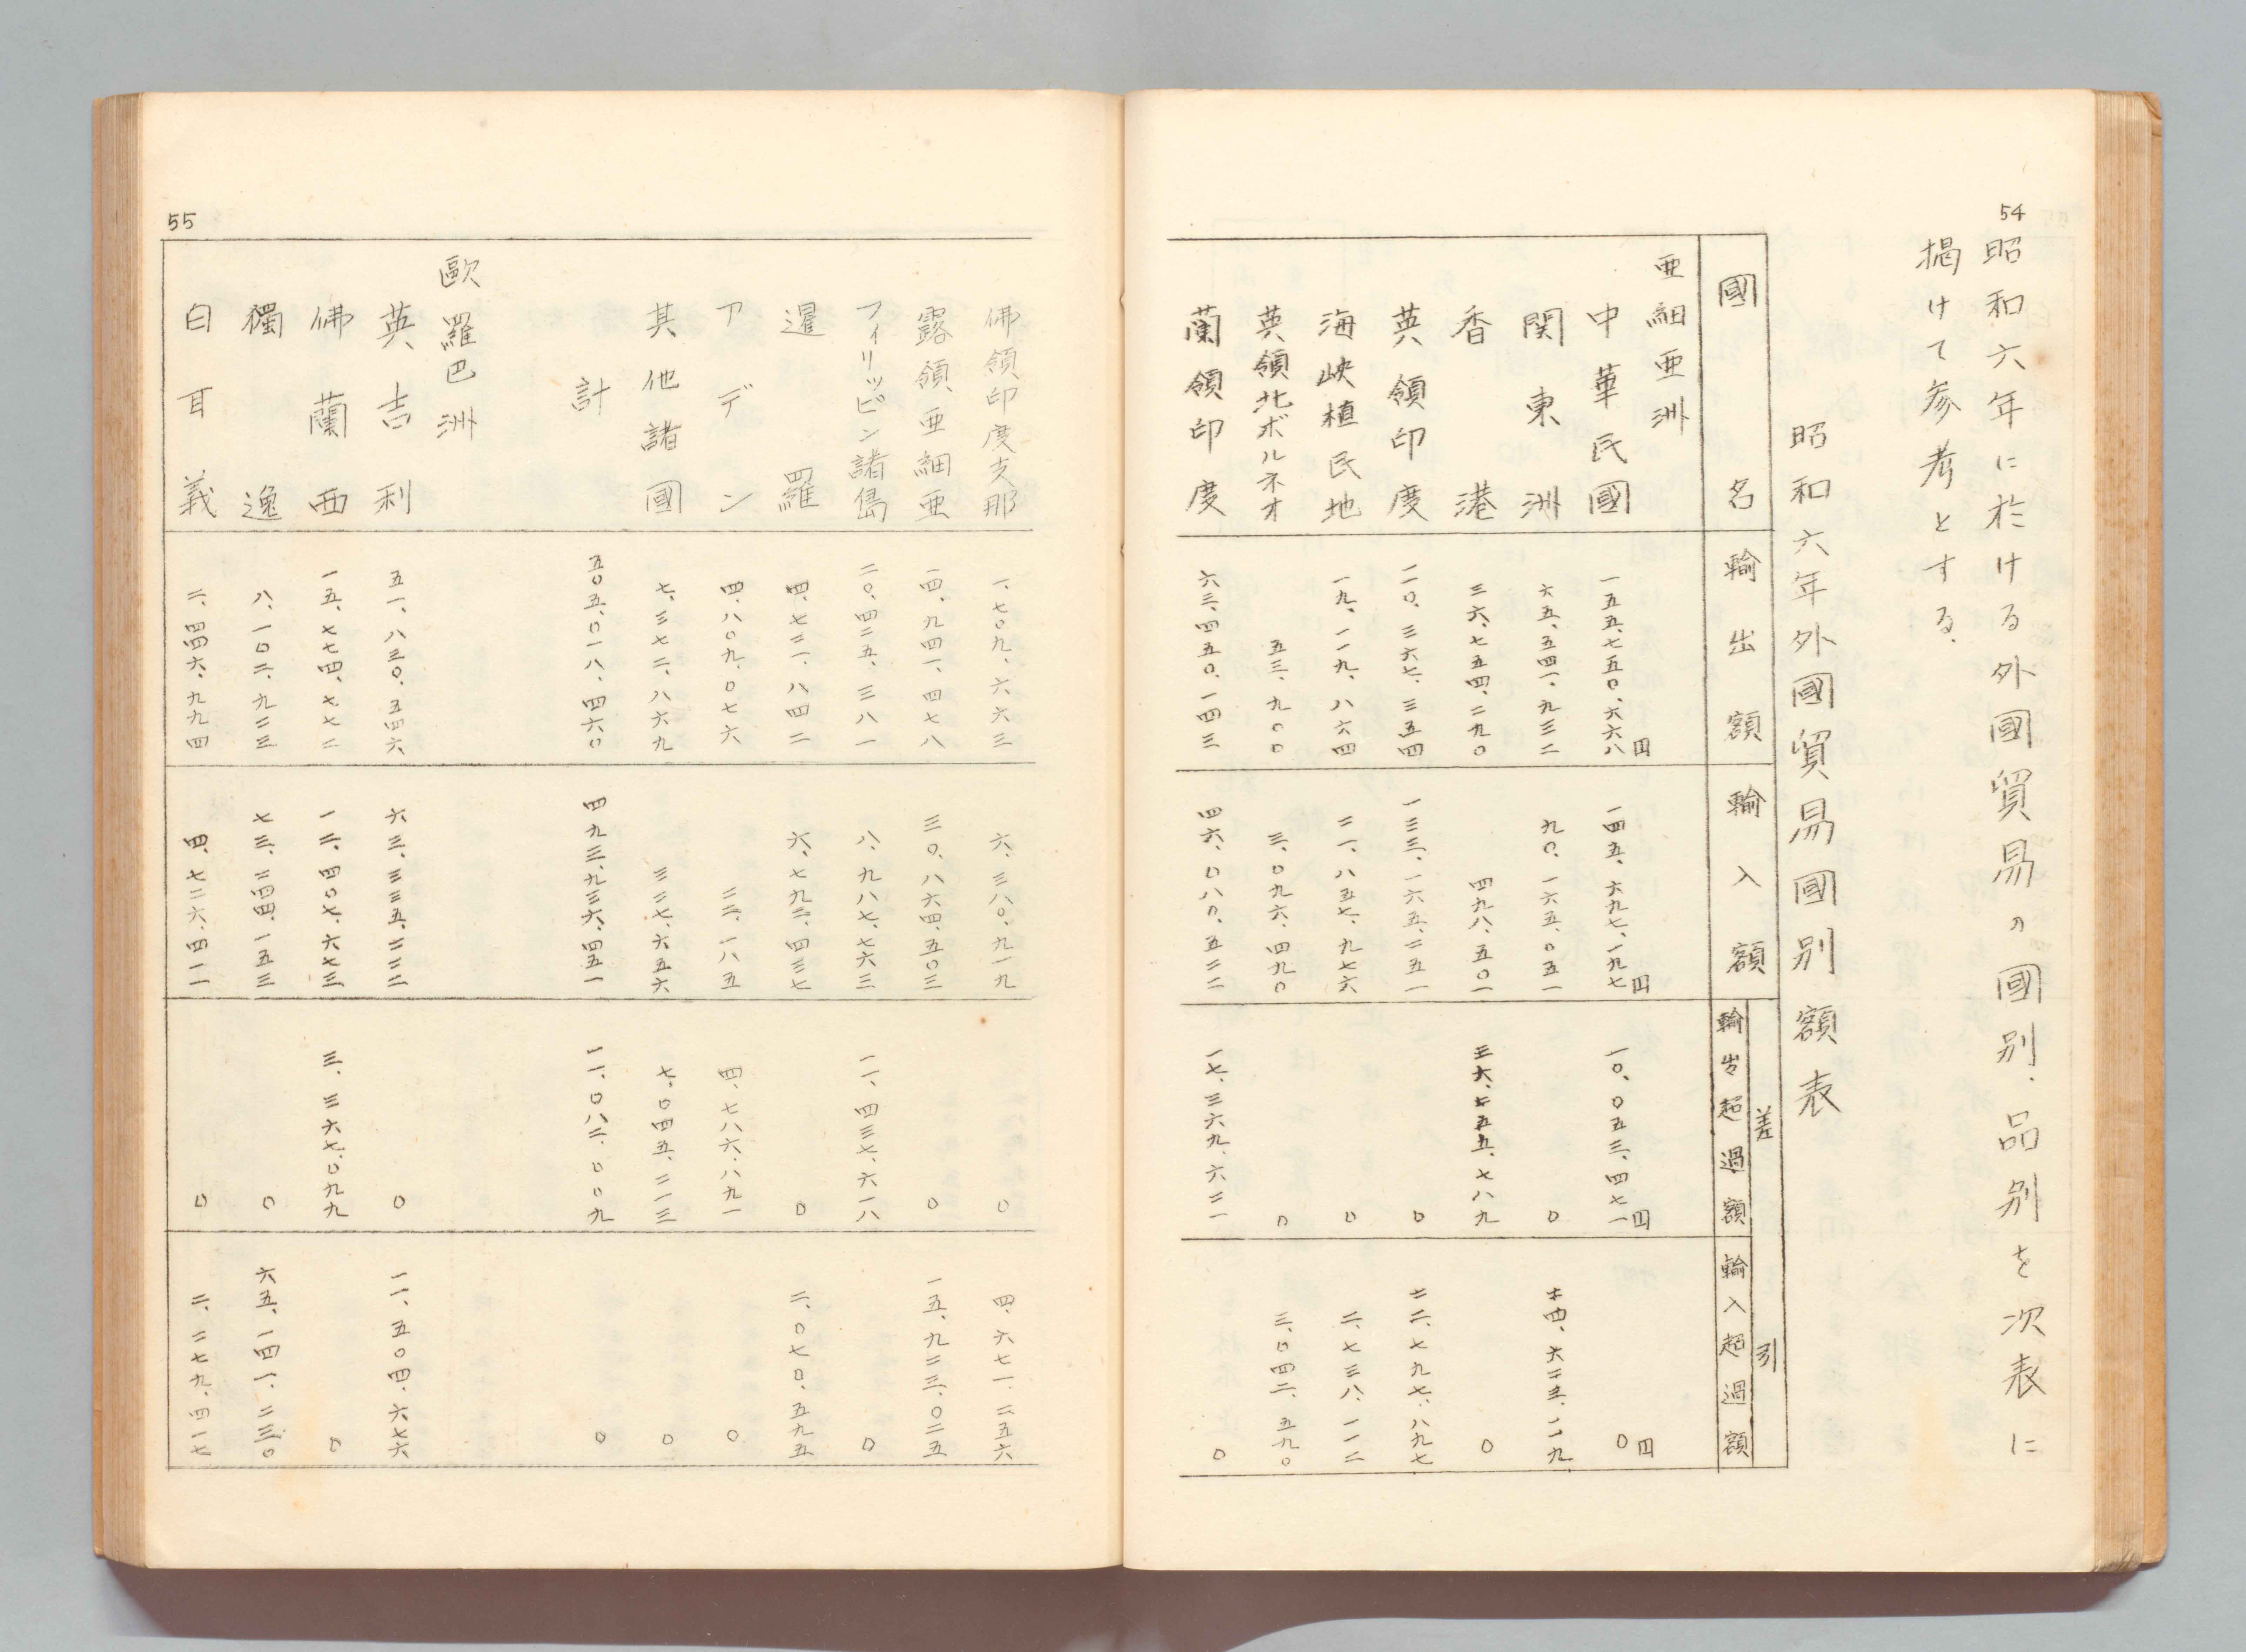 54
昭和六年に於ける外國貿易の國別．品別を次表に
掲けて参考とする．
昭和六年外國貿易國別額表
國名 輸出額 輸入額 差引 輸出超過額 輸入超過額
亜細亜洲
中華民國 一五五、七五〇、六六八円 一四五、六九七、一九七円 一〇、〇五三、四七一円 〇円
関東洲 六五、五四一、九三二 九〇、一六五、〇五一 〇 二四、六二三、一一九
香港 三六、七五四、二九〇 四九八、五〇一 三六、二五五、七八九 〇
英領印度 一一〇、三六七、三五四 一三三、一六五、二五一 〇 二二、七九七、八九七
海峡植民地 一九、一一九、八六四 二一、八五七、九七六 〇 二、七三八、一一二
英領北ボルネオ 五三、九〇〇 三、〇九六、四九〇 〇 三、〇四二、五九〇
蘭領印度 六三、四五〇、一四三 四六、〇八〇、五二二 一七、三六九、六二一 〇
55
佛領印度支那 一、七〇九、六六三 六、三八〇、九一九 〇 四、六七一、二五六
露領亜細亜 一四、九四一、四七八 三〇、八六四、五〇三 〇 一五、九二三、〇二五
フィリッピン諸島 二〇、四二五、三八一 八、九八七、七六三 一一、四三七、六一八 〇
暹羅 四、七二一、八四二 六、七九二、四三七 〇 二、〇七〇、五九五
アデン 四、八〇九、〇七六 二二、一八五 四、七八六、八九一 〇
其他諸國 七、三七二、八六九 三二七、六五六 七、〇四五、二一三 〇
計 五〇五、〇一八、四六〇 四九三、九三六、四五一 一一、〇八二、〇〇九 〇
歐羅巴洲
英吉利 五一、八三〇、五四六 六三、三三五、二二二 〇 一一、五〇四、六七六
佛蘭西 一五、七七四、七七二 一二、四〇七、六七三 三、三六七、〇九九 〇
獨逸 八、一〇二、九二三 七三、二四四、一五三 〇 六五、一四一、二三〇
白耳義 二、四四六、九九四 四、七二六、四一一 〇 二、二七九、四一七